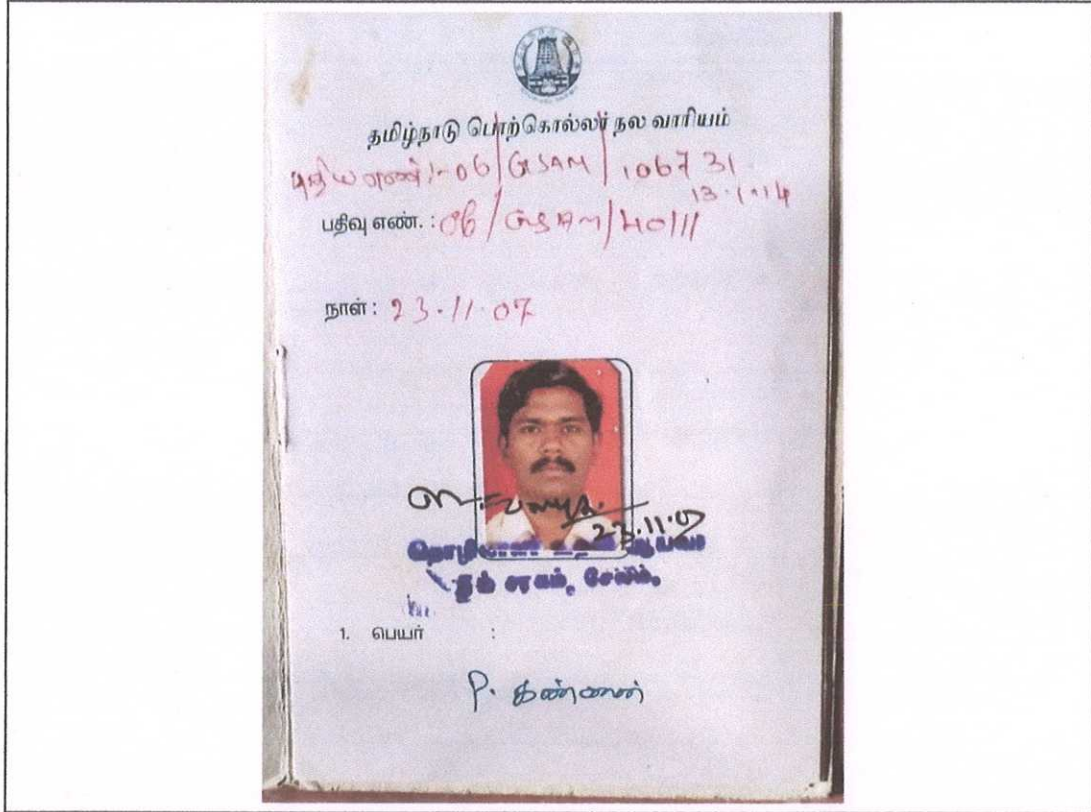 தமிழ்நாடு பொற்கொல்லர் நல வாரியம்
புதிய எண்:- 06/GSAM/106731
13.1.14
பதிவு எண். : 06/GSAM/40111
நாள் : 23.11.07
23.11.07
தொழிலாளர் உதவி ஆய்வர்
சரகம், சேலம்.
1. பெயர் :
P. கண்ணன்